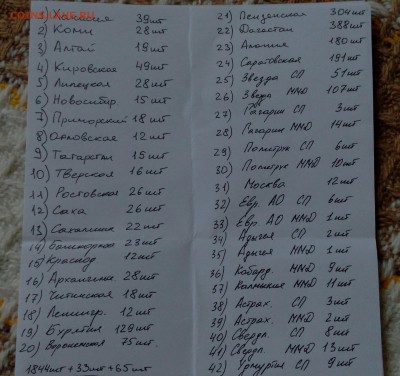 coins.lave.ru
39шт
2) Коми 28шт
3) Алтай 19шт
4) Кировская 49шт
5) Липецкая 28шт
6) Новосибир. 15шт
7) Приморский 18шт
8) Орловская 12шт
9) Татарстан 15шт
10) Тверская 16шт
11) Ростовская 26шт
12) Саха 26шт
13) Сахалинск 22шт
14) Башкортос 23шт
15) Краснод 12шт
16) Архангельс 28шт
17) Читинская 18шт
18) Ленингр. 12шт
19) Бурятия 129шт
20) Воронежская 75шт.
1844шт + 33шт + 65шт
21) Пензенская 304шт
22) Дагестан 388шт
23) Анапа 180шт
24) Саратовская 191шт
25) Звезда СП 51шт
26) Звезда ММД 107шт
27) Гагарин СП 3шт
28) Гагарин ММД 14шт
29) Политрук СП 6шт
30) Политрук ММД 10шт
31) Москва 12шт
32) Евр. АО СП 6шт
33) Евр. АО ММД 1шт
34) Адыгея СП 2шт
35) Адыгея ММД 1шт
36) Кабард. ММД 9шт
37) Калмыкия ММД 11шт
38) Астрах. СП 3шт
39) Астрах. ММД 2шт
40) Свердл. СП 8шт
41) Свердл. ММД 13шт
42) Удмуртия СП 9шт